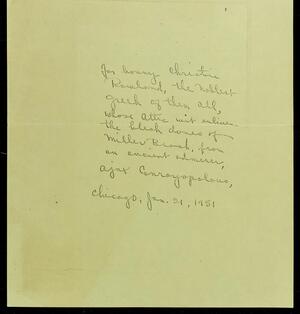 For bonny Christie
Bowland, the noblest
Greek of them all,
whose Attic wit enlivens
the bleak dunes of
Miller Beach, from
an ancient admirer,
Ajax Conroyopolous,
Chicago, Jan. 21, 1951